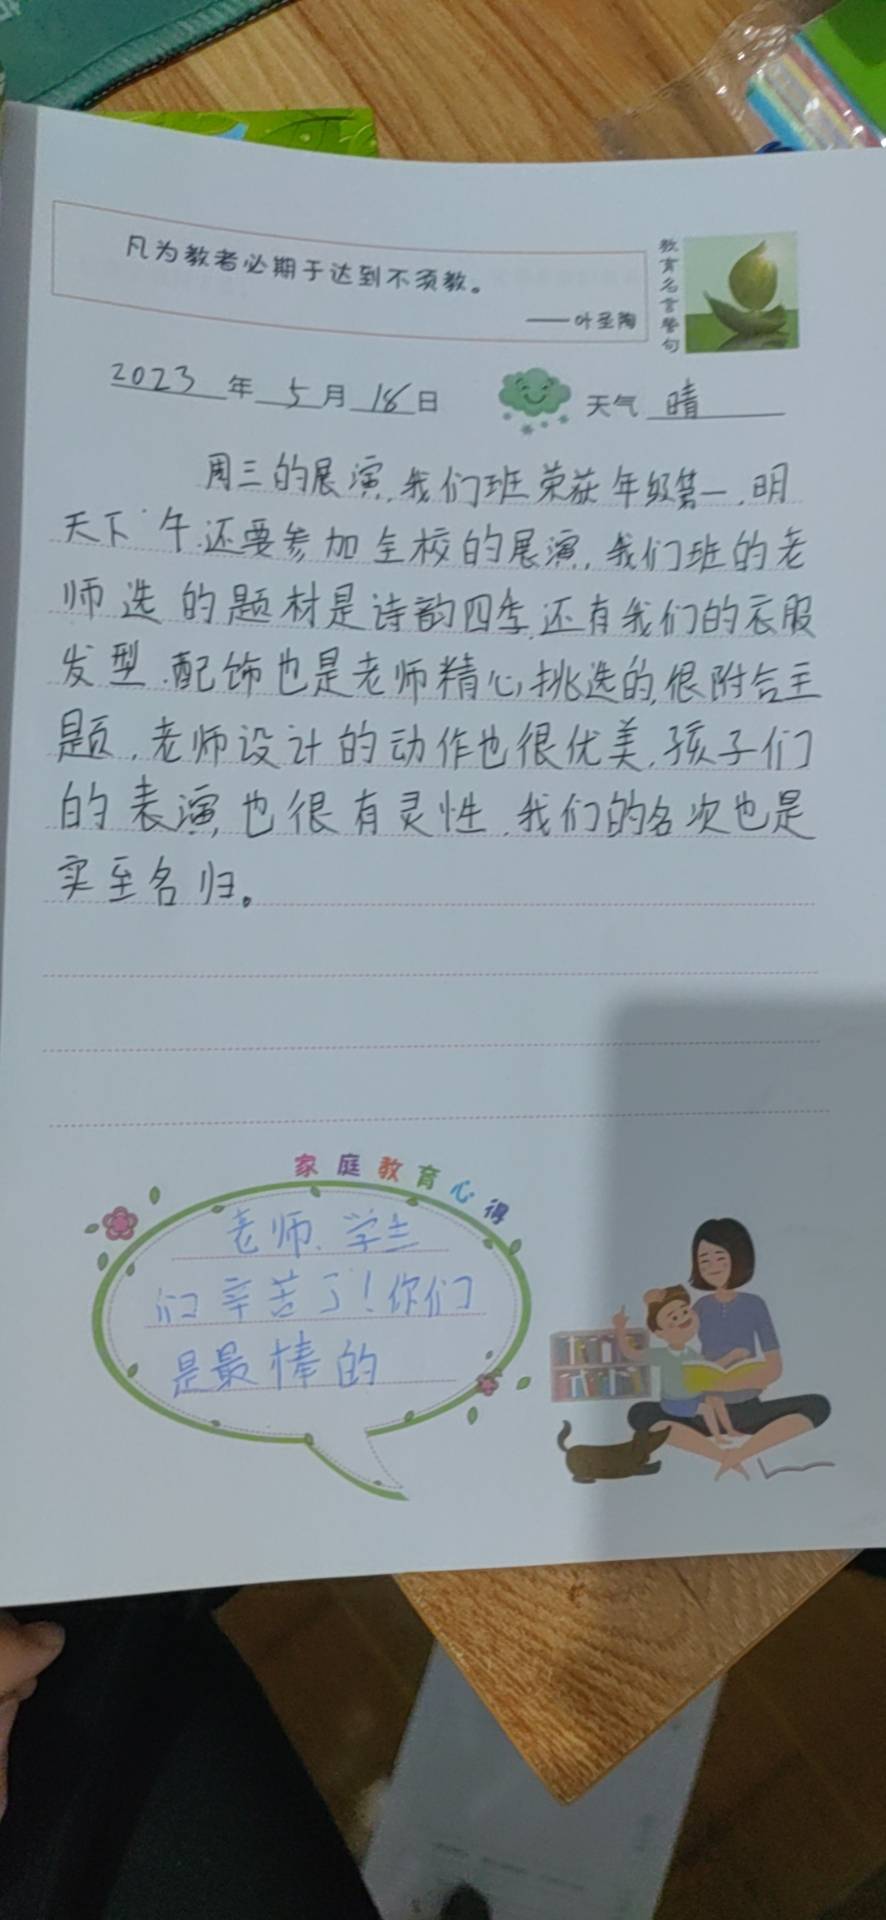 凡为教者必期于达到不须教。
——叶圣陶
教育名言警句
2023年5月18日 天气 晴
周三的展演,我们班荣获年级第一,明
天下午.还要参加全校的展演,我们班的老
师选的题材是诗韵四季,还有我们的衣服
发型.配饰也是老师精心挑选的,很附合主
题,老师设计的动作也很优美,孩子们
的表演也很有灵性,我们的名次也是
实至名归。
家庭教育心得
老师、学生
们辛苦了!你们
是最棒的